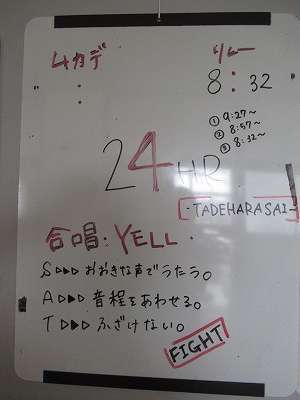 ムカデ
リレー
8:32
① 9:27～
② 8:57～
③ 8:32～
24HR
-TADEHARASAI-
合唱:YELL.
S▷▷▷おおきな声でうたう。
A▷▷▷音程をあわせる。
T▷▷▷ふざけない。
FIGHT